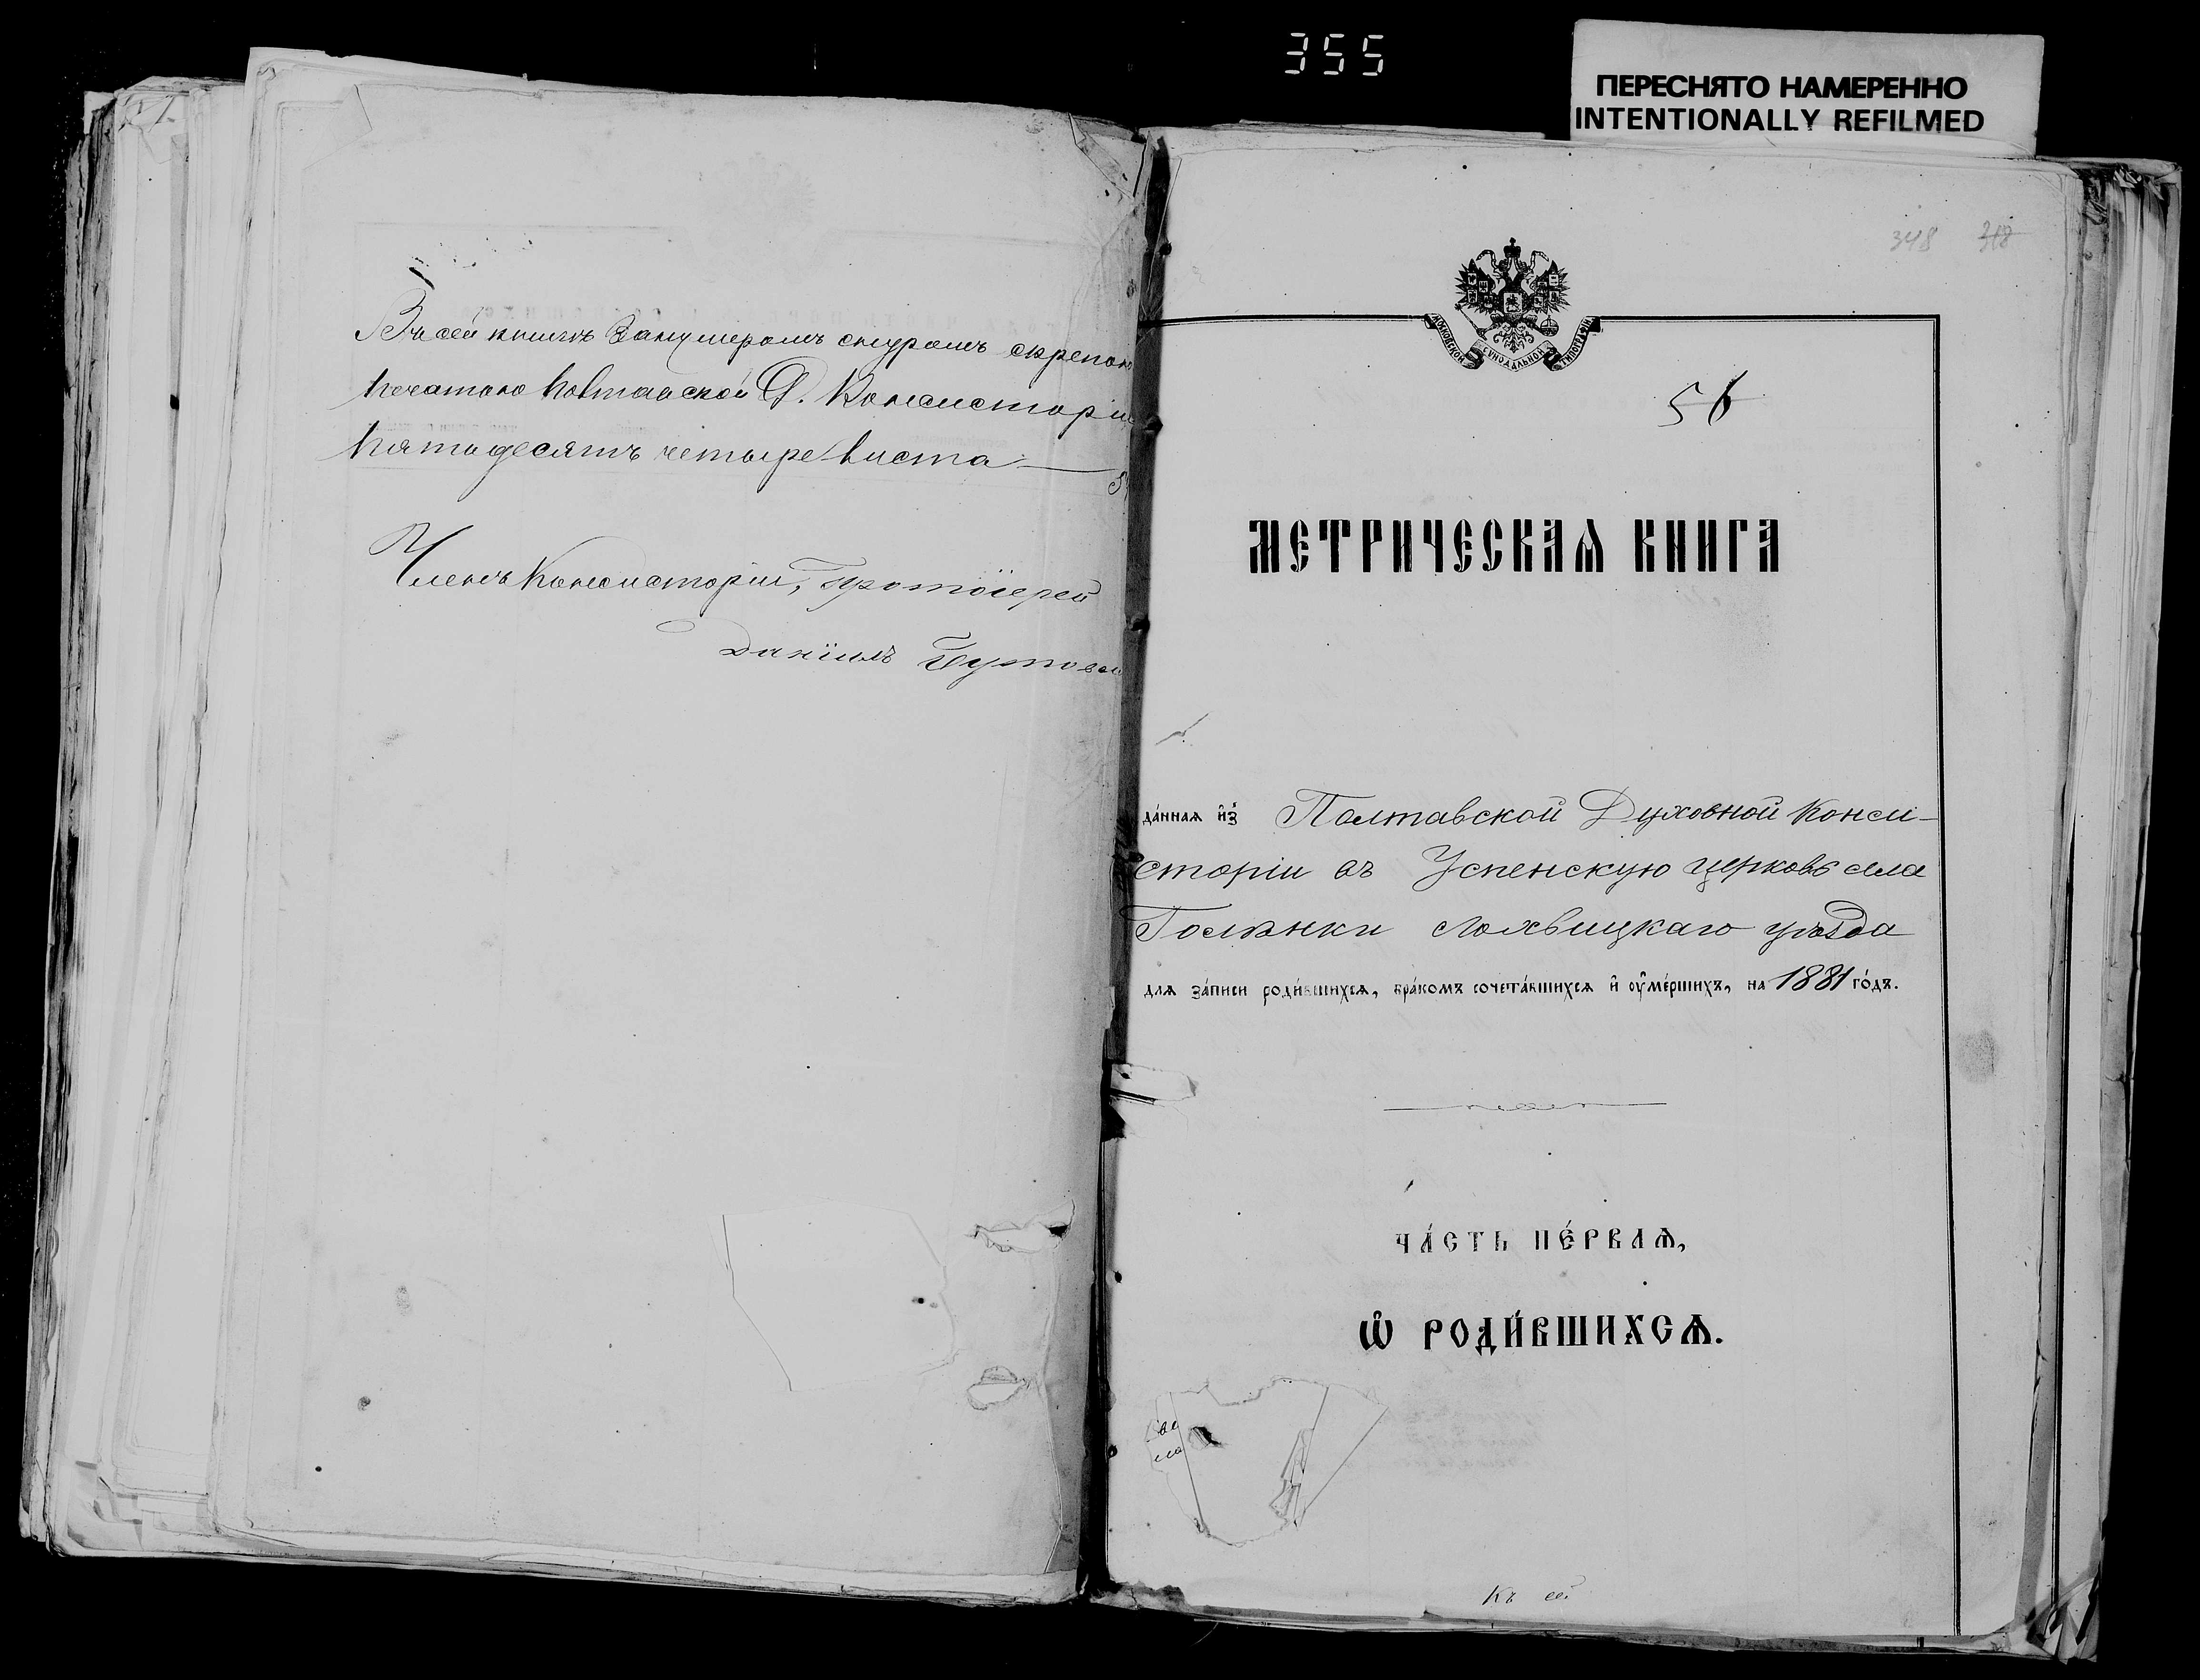 355
ПЕРЕСНЯТО НАМЕРЕННО
INTENTIONALLY REFILMED
Въ сей книгѣ занумеромъ снуромъ скрепою
печатью Полтавской Д. Консисторіи
пятьдесятъ четыре листа
Членъ Консисторіи, Протоіерей
Даніилъ
348 318
МОСКОВСКОЙ СѴНОДАЛЬНОЙ ТИПОГРАФІИ
56
МЕТРИЧЕСКАѦ КНИГА
да́ннаѧ и҆з̾ Полтавской Духовной Конси-
сторіи въ Успенскую церковь села
Голѣнки Лохвицкаго уѣзда
длѧ за́писи роди́вшихсѧ, бра́комъ сочета́вшихсѧ и҆ ᲂу҆ме́ршихъ, на 1881 го́дъ.
ЧА́СТЬ ПЕ́РВАѦ,
Ѡ҆ РОДИ́ВШИХСѦ.
Къ сей